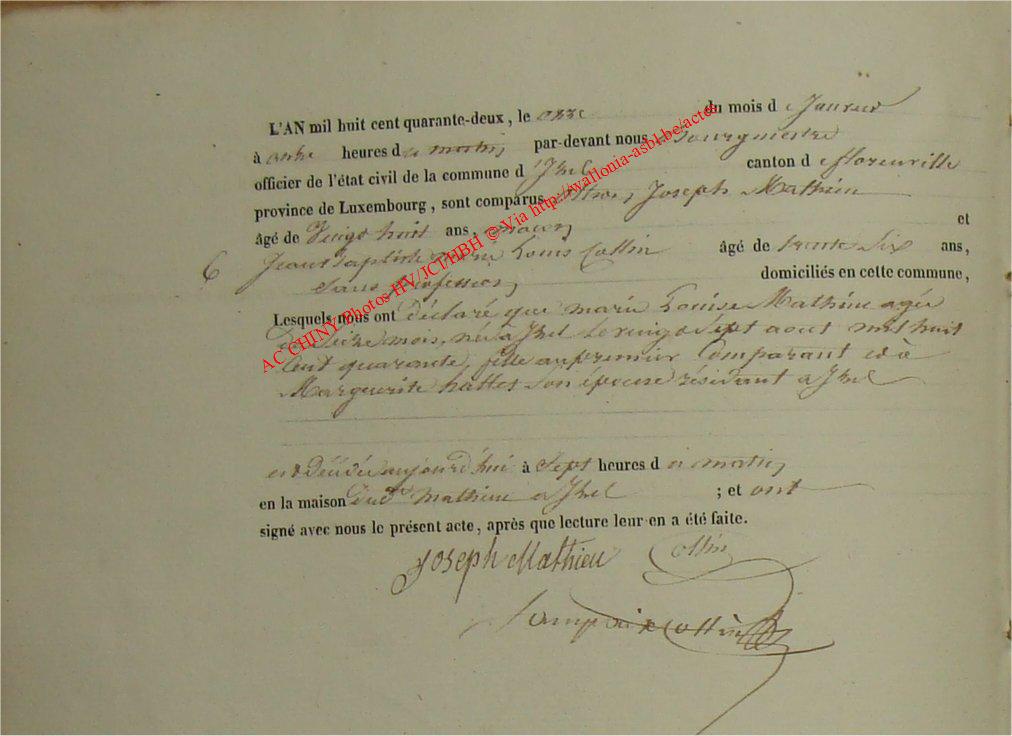 L'AN mil huit cent quarante-deux, le onze du mois d e Janvier
à onze heures d u matin, par-devant nous Bourgmestre
officier de l'état civil de la commune d 'Izel canton d e florenville
province de Luxembourg, sont comparus Joseph Mathieu
âgé de Vingt huit ans, maçon, et
6 Jean Baptiste Louis Collin âgé de trente Six ans,
Sans profession, domiciliés en cette commune,
Lesquels nous ont déclaré que marie Louise Mathieu agée
de Seize mois, née a Izel le vingt Sept aout mil huit
Cent quarante, fille au premier Comparant et à
Marguerite hattet Son épouse résidant a Izel
est décédée aujourd'hui à Sept heures d u matin,
en la maison dud. Mathieu a Izel ; et ont
signé avec nous le présent acte, après que lecture leur en a été faite.
Joseph Mathieu Collin
Collin
AC CHINY Photos HV/JCI/HBH © Via http://wallonia-asbl.be/actes